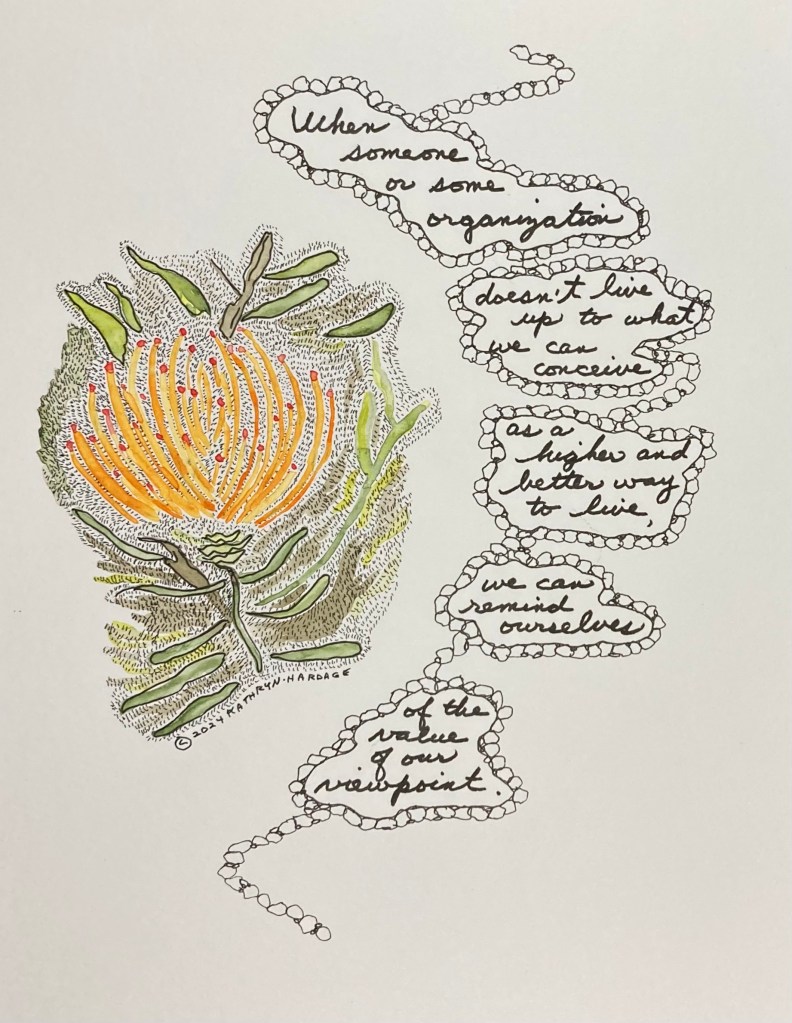 When
someone
or some
organization
doesn't live
up to what
we can
conceive
as a
higher and
better way
to live,
we can
remind
ourselves
of the
value
of our
viewpoint.
© 2024 KATHRYN·HARDAGE